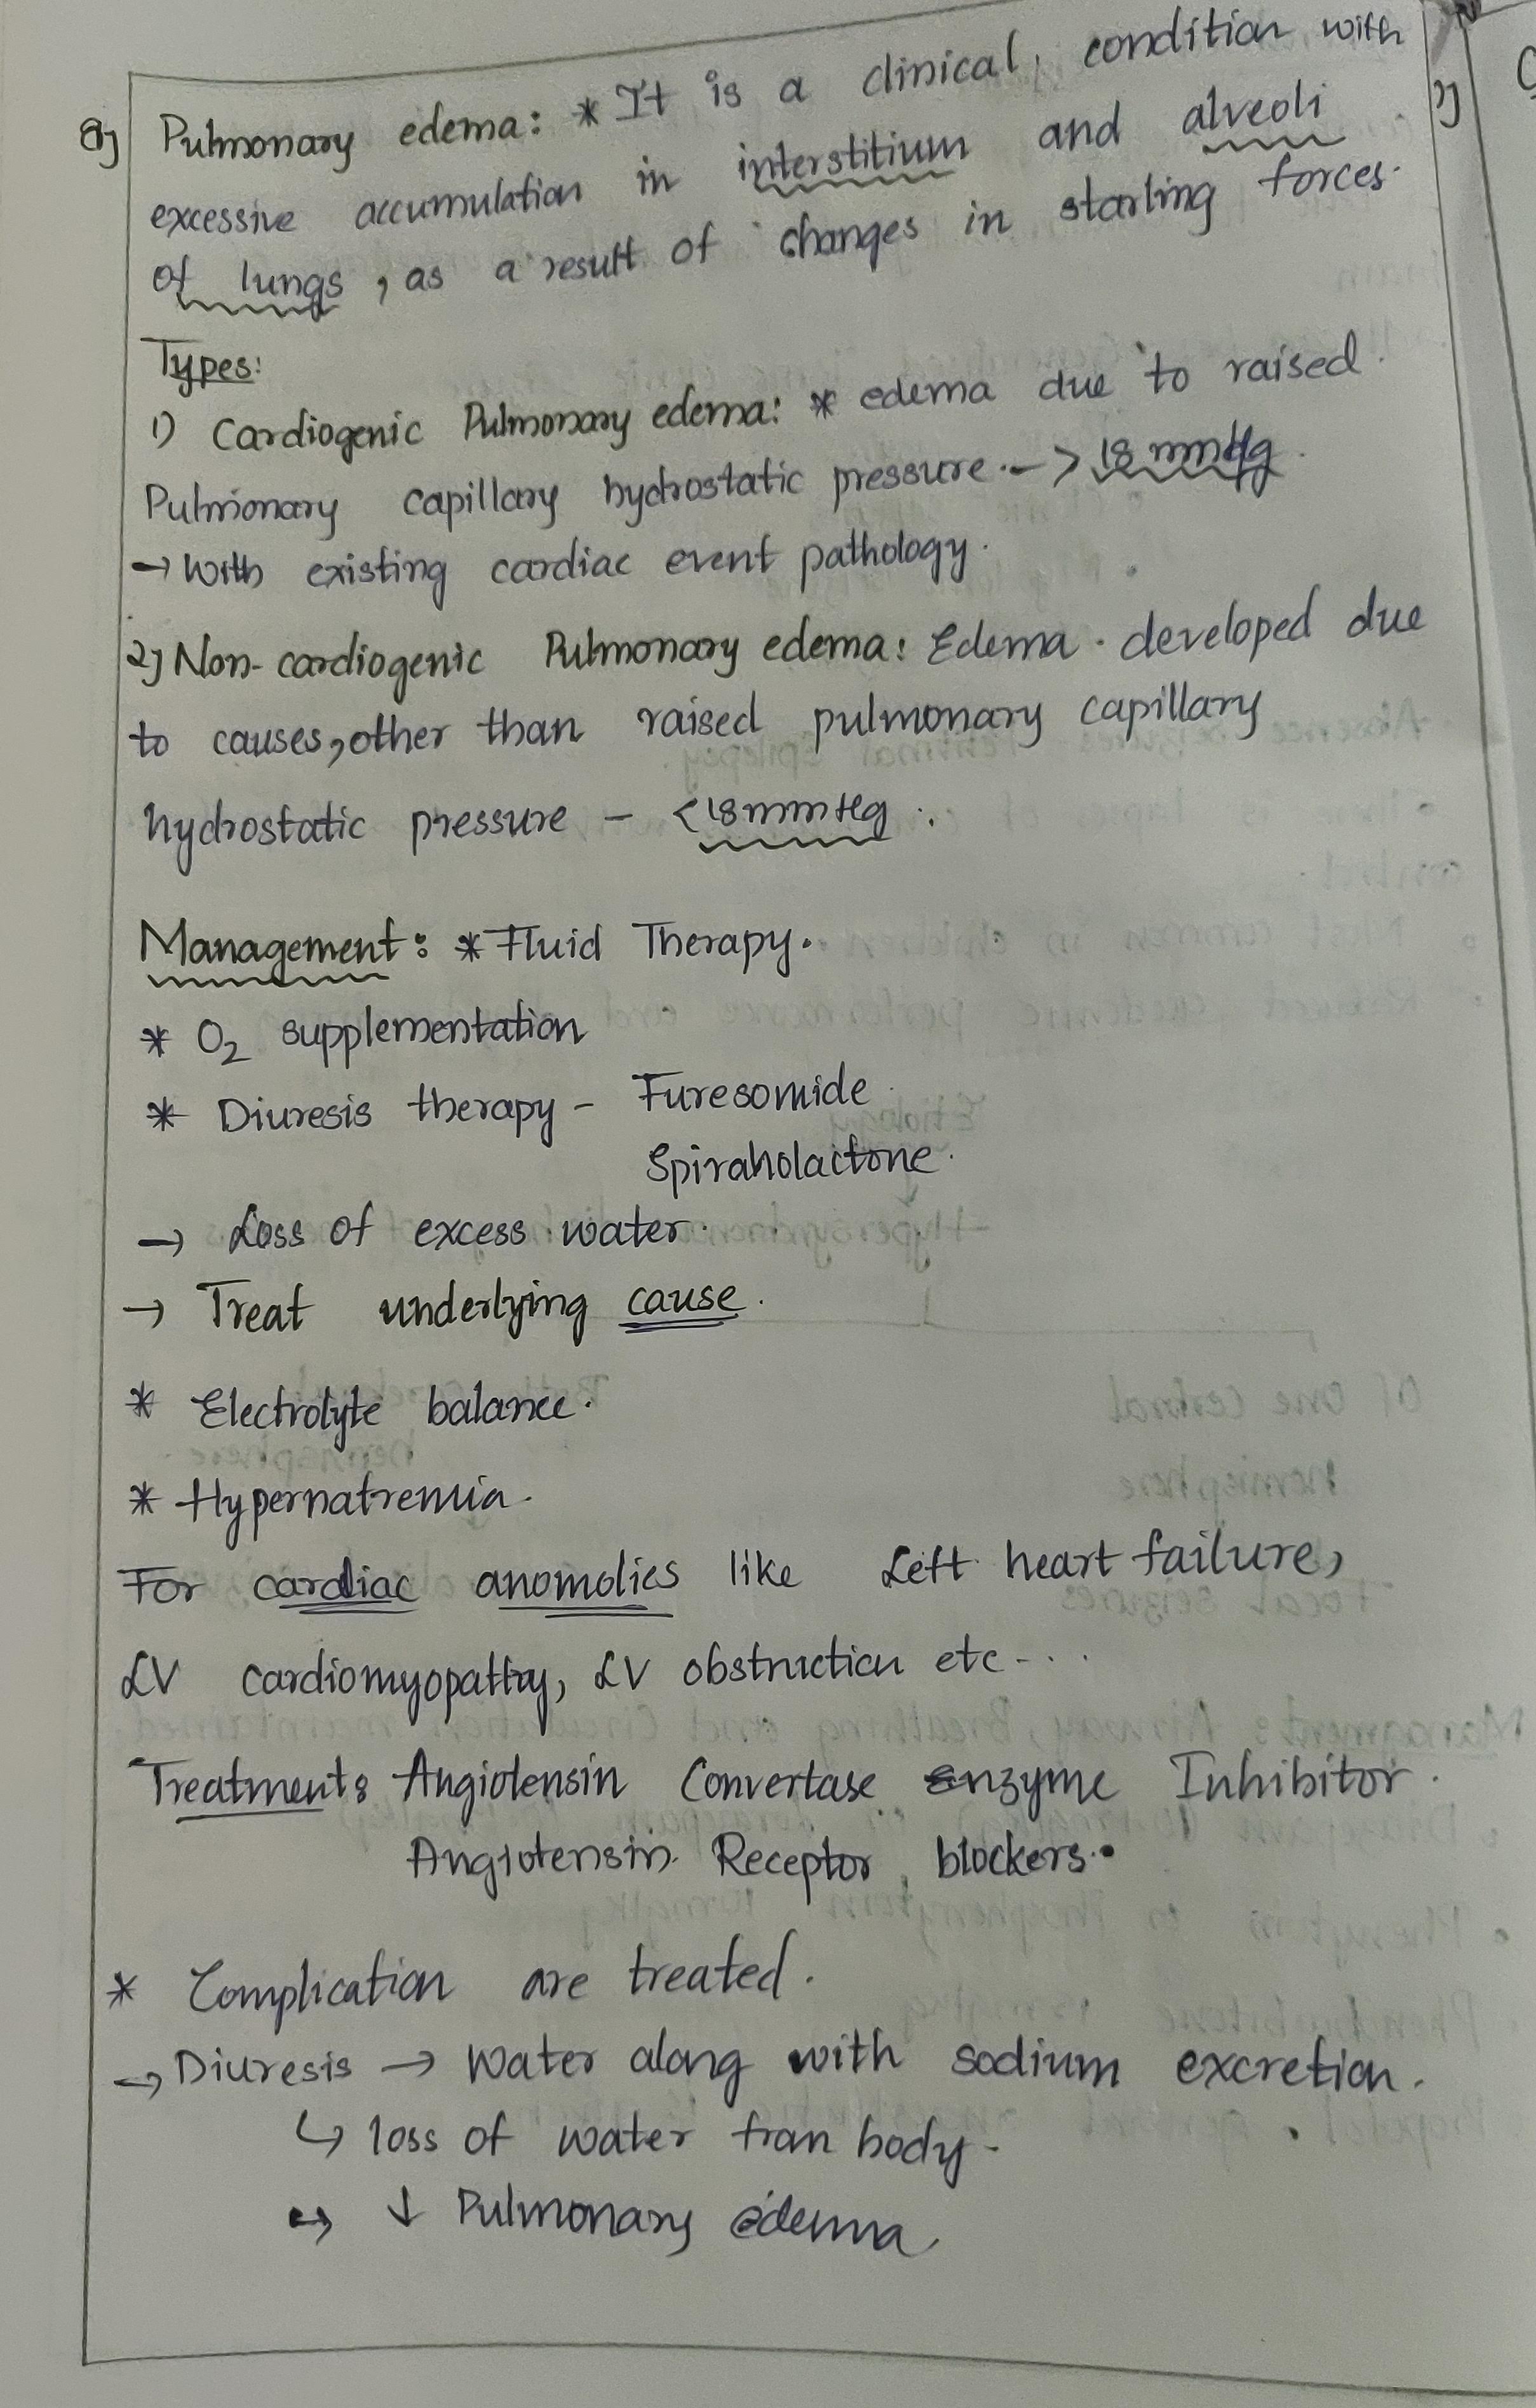 8) Pulmonary edema: * It is a clinical, condition with
excessive accumulation in interstitium and alveoli
of lungs, as a result of changes in starling forces.
Types:
1) Cardiogenic Pulmonary edema: * edema due to raised
Pulmonary capillary hydrostatic pressure - > 18 mmHg
→ With existing cardiac event pathology.
2) Non-cardiogenic Pulmonary edema: Edema developed due
to causes, other than raised pulmonary capillary
hydrostatic pressure - < 18 mmHg
Management: * Fluid Therapy.
* O2 supplementation
* Diuresis therapy - Furesomide
Spiraholactone.
→ Loss of excess water.
→ Treat underlying cause.
* Electrolyte balance.
* Hypernatremia.
For cardiac anomolies like Left heart failure,
LV cardiomyopathy, LV obstruction etc ...
Treatment: Angiotensin Convertase Enzyme Inhibitor.
Angiotensin Receptor blockers.
* Complication are treated.
→ Diuresis → Water along with sodium excretion.
↳ loss of water fran body -
↪ ↓ Pulmonary edema